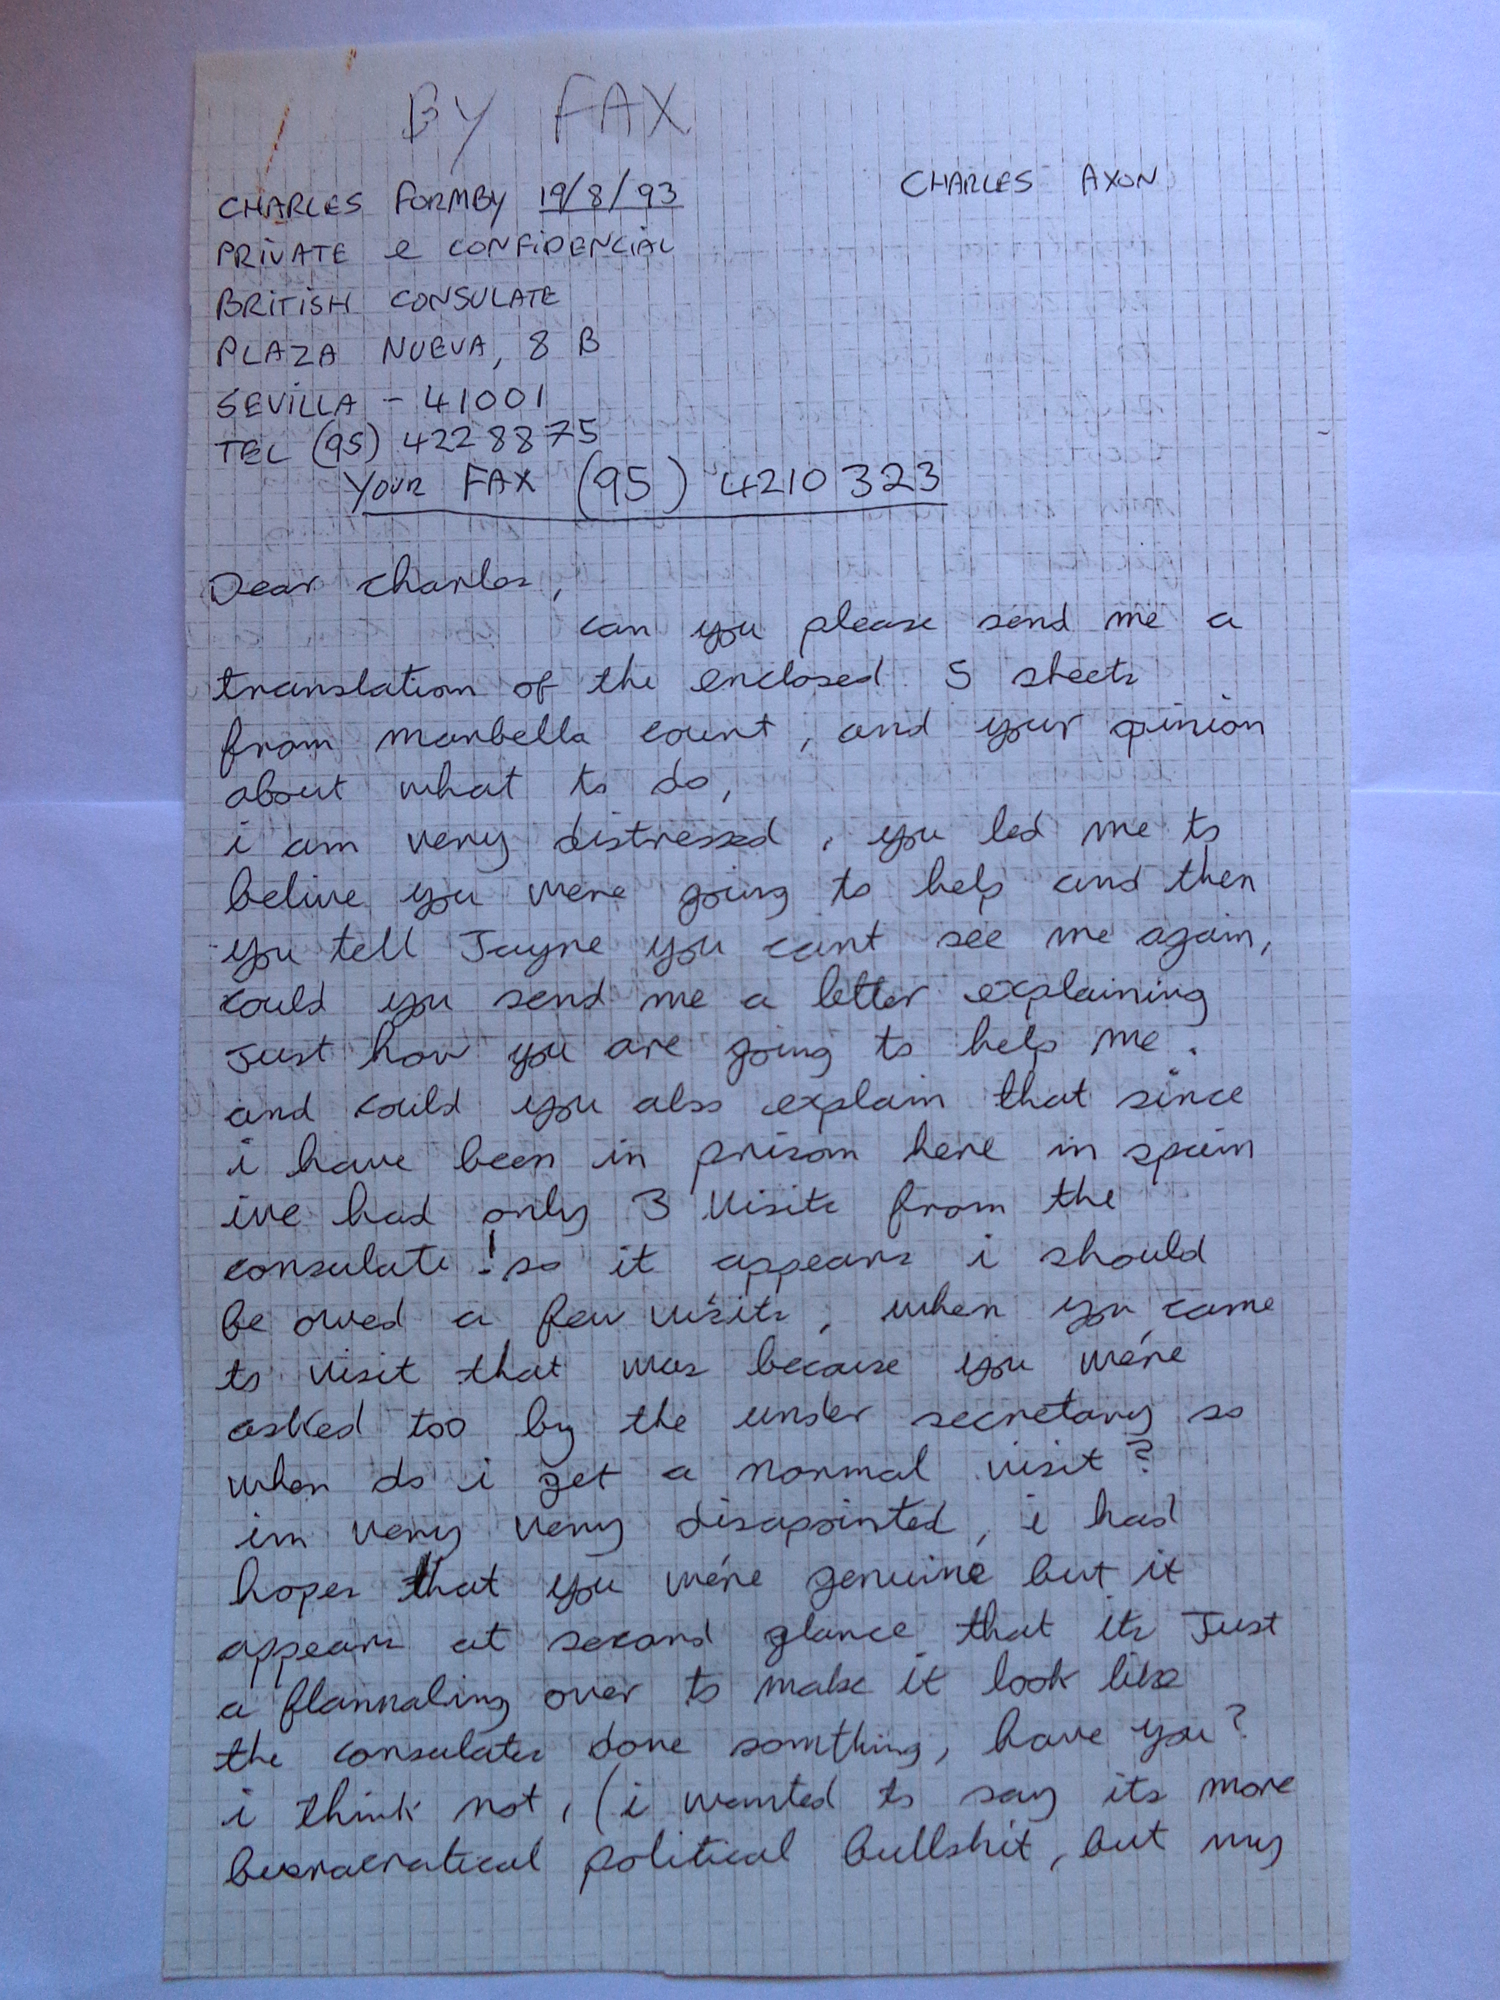 BY FAX
CHARLES FORMBY 19/8/93
CHARLES AXON
PRIVATE e CONFIDENCIAL
BRITISH CONSULATE
PLAZA NUEVA, 8 B
SEVILLA - 41001
TEL (95) 4228875
YOUR FAX (95) 4210323
Dear Charles,
can you please send me a
translation of the enclosed 5 sheets
from marbella court, and your opinion
about what to do,
i am very distressed, you led me to
belive you were going to help and then
you tell Jayne you cant see me again,
could you send me a letter explaining
Just how you are going to help me.
and could you also explain that since
i have been in prison here in spain
ive had only 3 visits from the
consulate! so it appears i should
be owed a few visits, when you came
to visit that was because you were
asked too by the under secretary so
when do i get a normal visit?
im very very disapointed, i had
hopes that you were genuine but it
appears at second glance that its Just
a flannaling over to make it look like
the consulates done somthing, have you?
i think not, (i wanted to say its more
political bullshit, but my